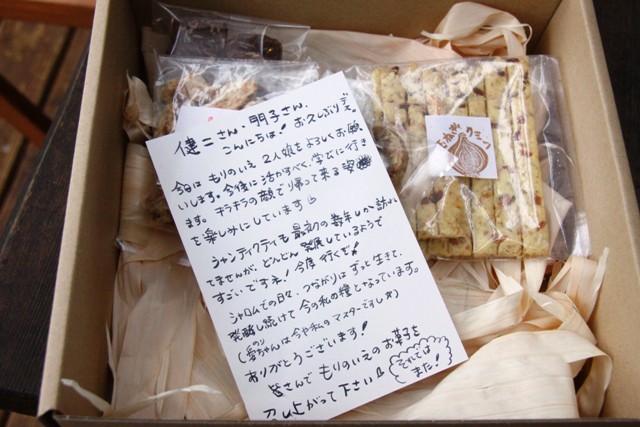 健二さん、朋子さん、
こんにちは! お久しぶりデス。
今日は もりのいえ 2人娘をよろしくお願
いします。今後に活かすべく、学びに行き
ます。キラキラの顔で帰って来る姿
を楽しみにしています
シャンティクティも最初の数年しか訪れ
てませんが、どんどん発展しているようで
すごいですネ! 今度行くぞ!
シャロムでの日々、つながりはずっと生きて、
発酵し続けて今の私の糧となっています。
(愛ちゃんは今や私のマスターですし)
ありがとうございます!
皆さんで もりのいえのお菓子を
召し上がって下さい
それでは
また!
たまねぎ
クミーン